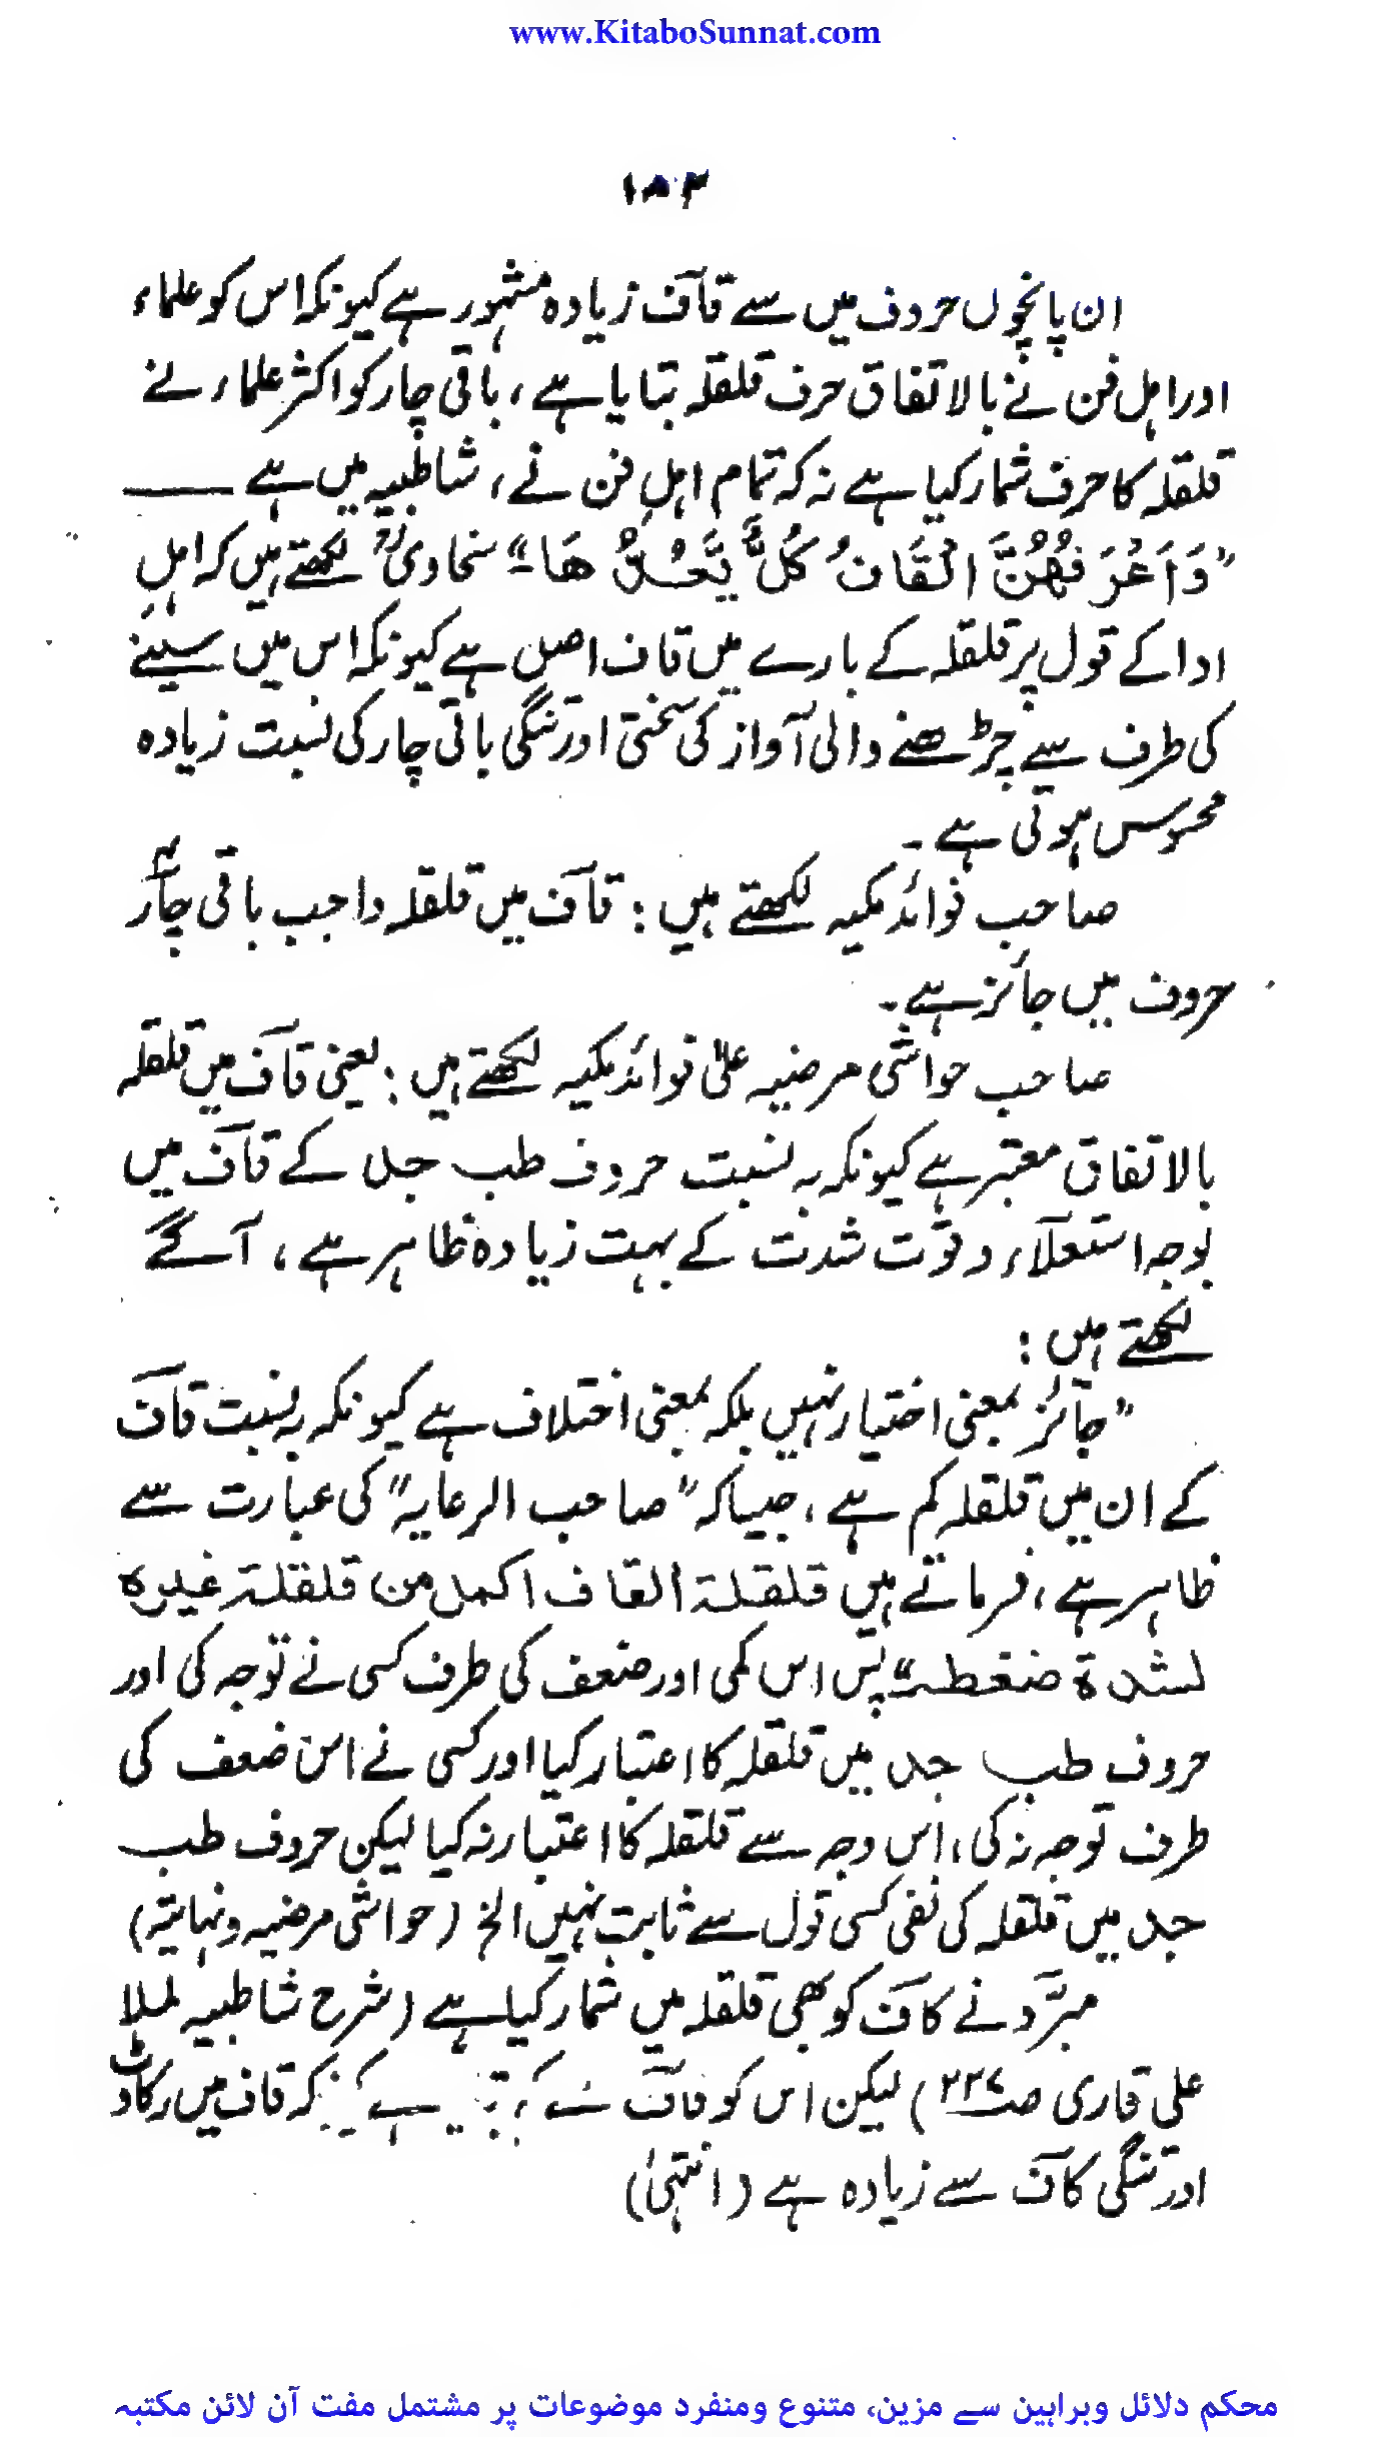 www.KitaboSunnat.com
۱۸۳
ان پانچوں حروف میں سے قآف زیادہ مشہور ہے کیونکہ اس کو علماء
اور اہل فن نے بالاتفاق حرف قلقلہ بتایا ہے، باقی چار کو اکثر علماء نے
قلقلہ کا حرف شمار کیا ہے نہ کہ تمام اہلِ فن نے، شاطبیہ میں ہے ——
”وَاَعْرَفُهُنَّ الْقَافُ كُلٌّ يَّعُدُّهَا“ سخاویؒ لکھتے ہیں کہ اہلِ
ادا کے قول پر قلقلہ کے بارے میں قاف اصل ہے کیونکہ اس میں سینے
کی طرف سے چڑھنے والی آواز کی سختی اور تنگی باقی چار کی نسبت زیادہ
محسوس ہوتی ہے۔
صاحب فوائد مکیہ لکھتے ہیں: قآف میں قلقلہ واجب باقی چار
حروف میں جائز ہے۔
صاحب حواشی مرضیہ علیٰ فوائد مکیہ لکھتے ہیں: یعنی قآف میں قلقلہ
بالاتفاق معتبر ہے کیونکہ بہ نسبت حروف طب جد کے قآف میں
بوجہ استعلآء وقوّت شدت کے بہت زیادہ ظاہر ہے، آگے
لکھتے ہیں:
”جآئز بمعنی اختیار نہیں بلکہ بمعنی اختلاف ہے کیونکہ بہ نسبت قآف
کے ان میں قلقلہ کم ہے، جیسا کہ ”صاحب الرعایہ“ کی عبارت سے
ظاہر ہے، فرماتے ہیں قلقلة القاف اكمل من قلقلة غيره
لشدة ضغطہ“ پس اس کمی اور ضعف کی طرف کسی نے توجہ کی اور
حروف طب جد میں قلقلہ کا اعتبار کیا اور کسی نے اس ضعف کی
طرف توجہ نہ کی، اس وجہ سے قلقلہ کا اعتبار نہ کیا لیکن حروف طب
جد میں قلقلہ کی نفی کسی قول سے ثابت نہیں الخ (حواشی مرضیہ ونہایتہ)
مبرّد نے کآف کو بھی قلقلہ میں شمار کیا ہے (شرح شاطبیہ لملا
علی قاری ص ۲۳۷) لیکن اس کو قآف سے ہے کہ قاف میں رکاوٹ
اور تنگی کآف سے زیادہ ہے (انتہیٰ)
محکم دلائل وبراہین سے مزین، متنوع ومنفرد موضوعات پر مشتمل مفت آن لائن مکتبہ